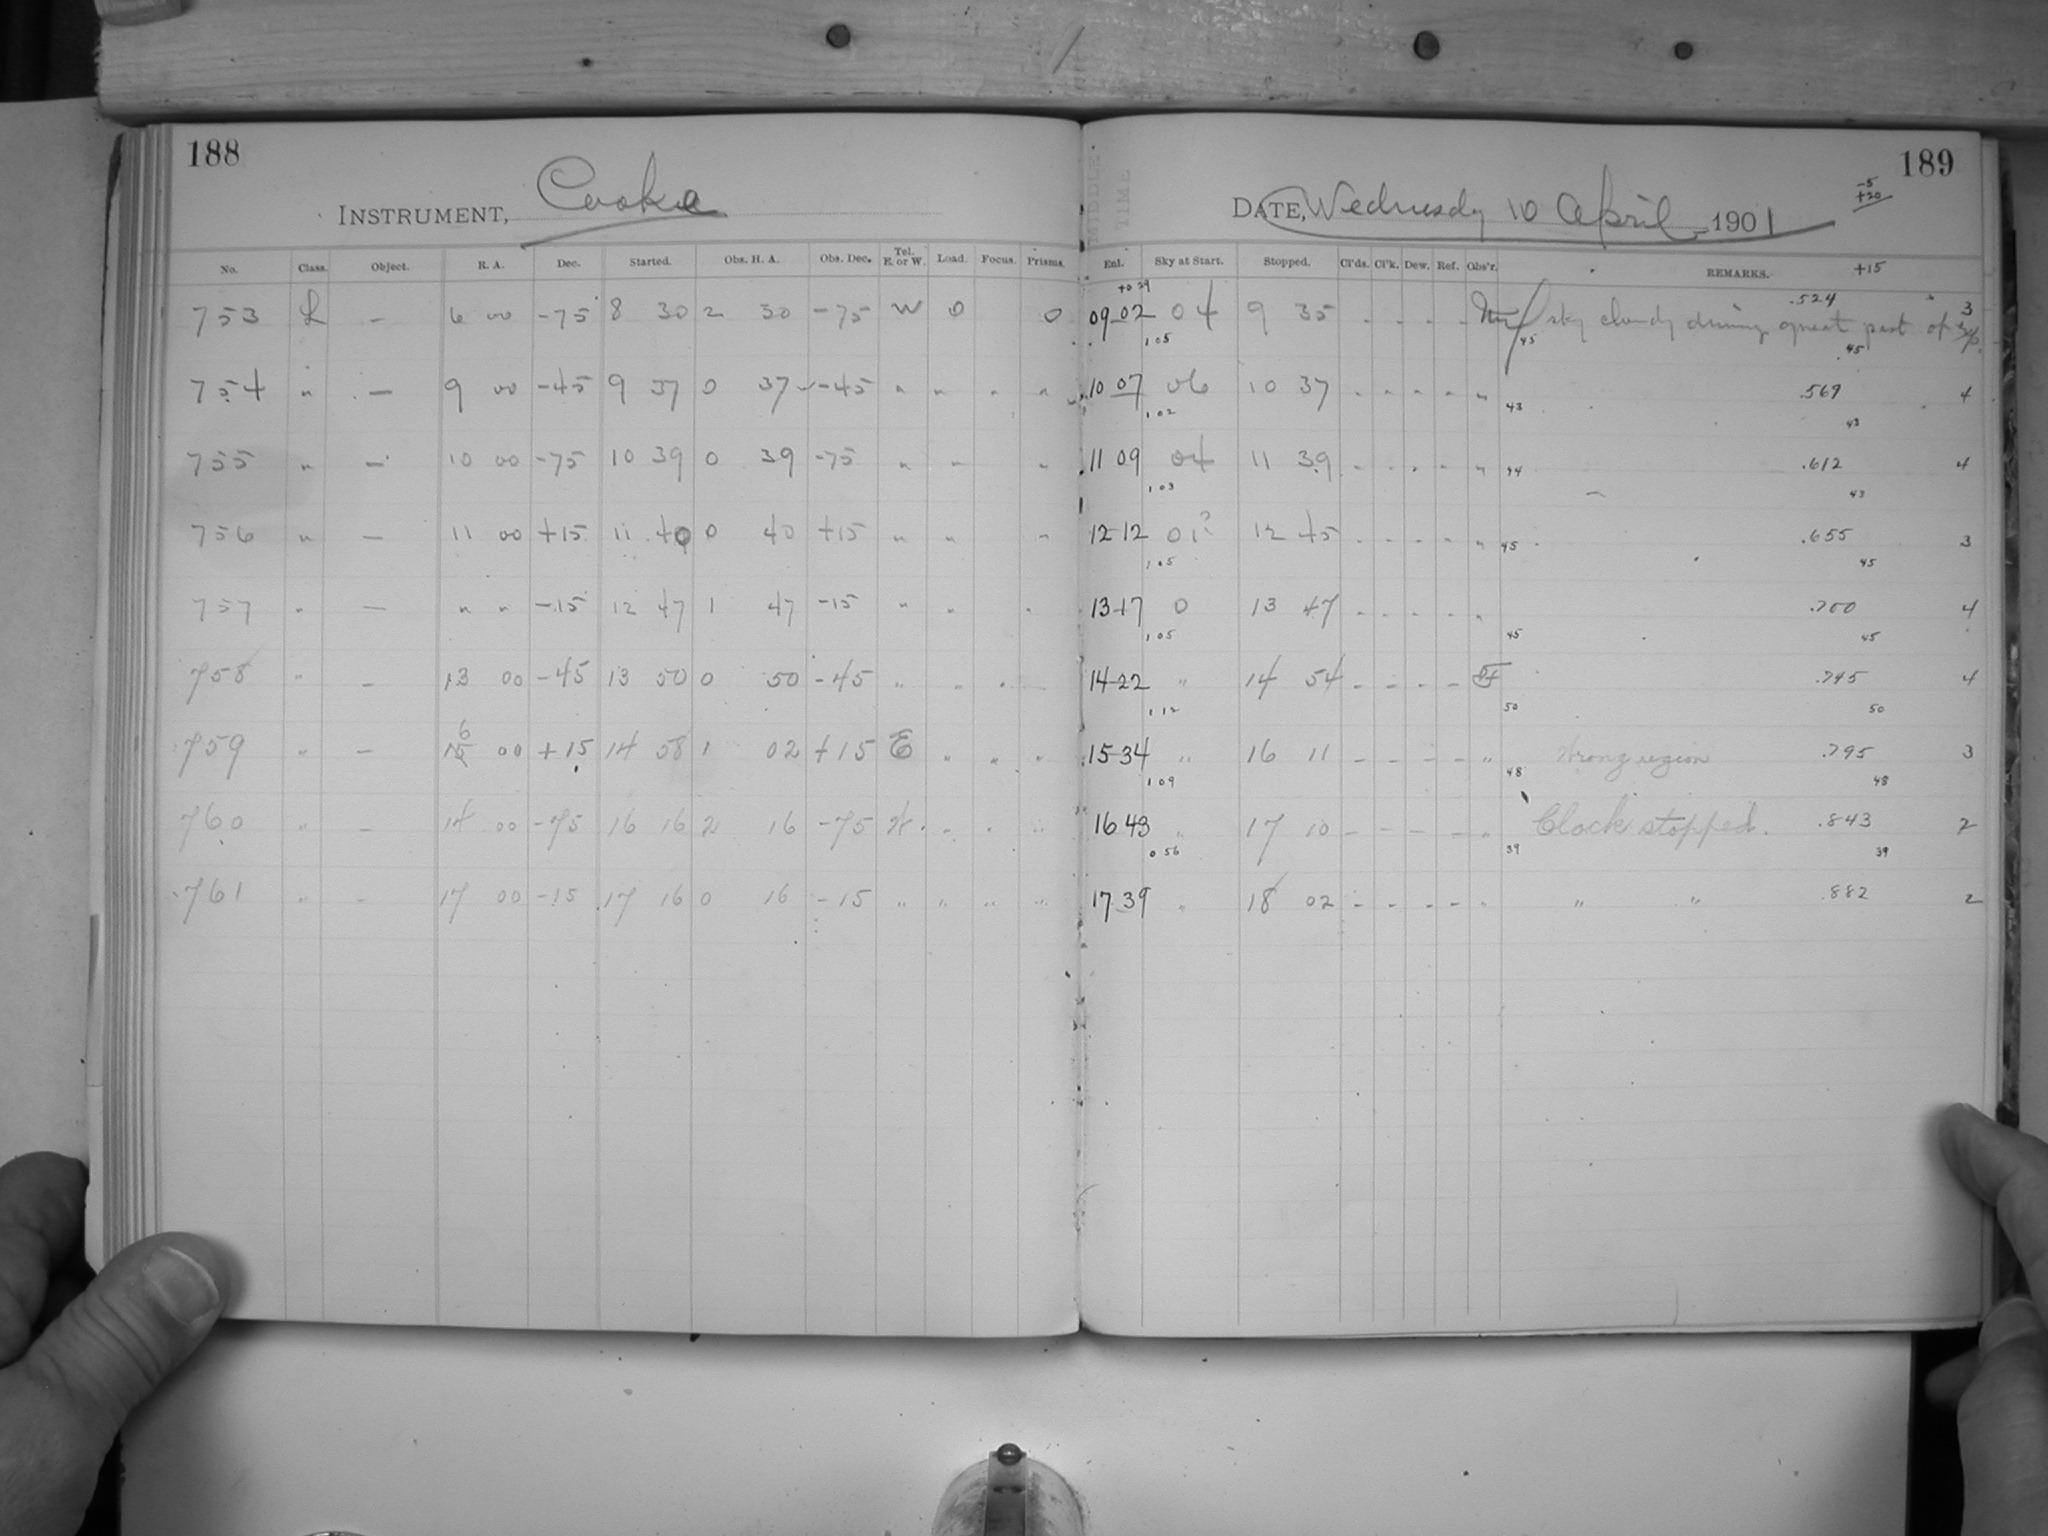 188
INSTRUMENT, Cooke
No. Class. Object. R. A. Dec. Started. Obs. H. A. Obs. Dec. Tel. E. or W. Load. Focus. Prisms.
753 L — 6 00 -75 8 30 2 30 -75 W 0 0
754 " — 9 00 -45 9 37 0 37 -45 " " " "
755 " — 10 00 -75 10 39 0 39 -75 " " "
756 " — 11 00 +15 11 40 0 40 +15 " " "
757 " — " " -15 12 47 1 47 -15 " " "
758 " — 13 00 -45 13 50 0 50 -45 " " " "
6
759 " — 15 00 +15 14 58 1 02 +15 E " " "
760 " — 14 00 -75 16 16 2 16 -75 W " " "
761 " — 17 00 -15 17 16 0 16 -15 " " " "
189
MIDDLE TIME
-5
+20
DATE, Wednesday 10 April 1901
+15
Enl. Sky at Start. Stopped. Cl'ds. Cl'k. Dew. Ref. Obs'r. REMARKS.
+0 29
09 02 04 9 35 - - - - sky cloudy during great part of .524 3
1 05 45 45
10 07 06 10 37 - - - - " .569 4
1 02 43 43
11 09 04 11 39 - - - - " 44 .612 4
1 03 43
12 12 01? 12 45 - - - - " 45 .655 3
1 05 45
13 17 0 13 47 - - - - " .700 4
1 05 45 45
14 22 " 14 54 - - - - .745 4
1 12 50 50
15 34 " 16 11 - - - - " Wrong region .795 3
1 09 48 48
16 43 " 17 10 - - - - " Clock stopped. .843 2
0 56 39 39
17 39 " 18 02 - - - - " " " .882 2